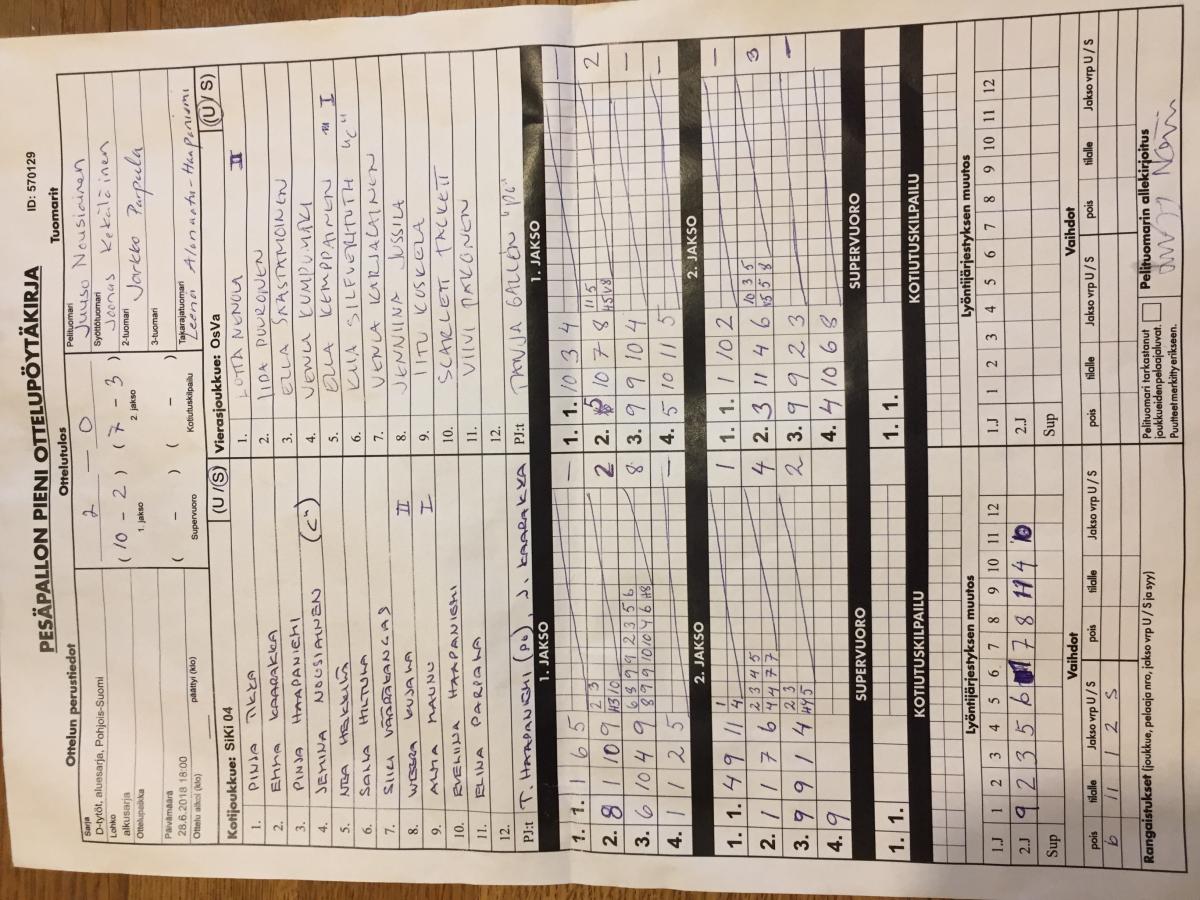 PESÄPALLON PIENI OTTELUPÖYTÄKIRJA
ID: 570129
Ottelun perustiedot
Ottelutulos
Tuomarit
Sarja
D-tytöt, aluesarja, Pohjois-Suomi
Lohko
alkusarja
Ottelupaikka
Päivämäärä
28.6.2018 18:00
Ottelu alkoi (klo)
päättyi (klo)
2 — 0
(10 - 2) (7 - 3)
1. jakso
2. jakso
( - ) ( - )
Supervuoro
Kotiutuskilpailu
Pelituomari
Juuso Nousiainen
Syöttötuomari
Joonas Kekäläinen
2-tuomari
Jarkko Parpala
3-tuomari
Takarajatuomari
Leena
Kotijoukkue: SiKi 04
(U / S)
1. PINJA TIKKA
2. EMMA KAARAKKA
3. PINJA HAAPANIEMI
4. JEMINA NOUSIAINEN ("C")
5. NEA HEKKILÄ
6. SALKA HILTULA
7. SIIRI VÄÄRÄKANGAS
8. KUJALA II
9. ALMA MAUNU I
10. EVELIINA HAAPANIEMI
11. ELINA PARPALA
12.
PJ:t T. HAAPANIEMI (PG), J. KAARAKKA
Vierasjoukkue: OsVa
(U / S)
1. LOTTA NENOLA II
2. IIDA PUUROINEN
3. ELLA SAASTAMOINEN
4. VENLA KUMPUMÄKI
5. ELLA KEMPPAINEN I
6. KAIA SILFVERITUTH "C"
7. VENLA KARJALAINEN
8. JENNIINA JUSSILA
9. IITU KOSKELA
10. SCARLETT TALKETT
11. VIIVI PAKONEN
12.
PJ:t TANJA GALLEN "PG"
1. JAKSO
1. 1. 1 6 5 —
2. 8 1 10 9 2
3. 6 10 4 9 8
4. 1 1 2 5 —
1. JAKSO
1. 1. 10 3 4 —
2. 5 10 7 8 2
3. 9 9 10 4 —
4. 5 10 11 5 —
2. JAKSO
1. 1. 4 9 11 1
2. 1 1 7 6 4
3. 9 9 1 4 2
4. 9
2. JAKSO
1. 1. 1 10 2 —
2. 3 11 4 6 3
3. 9 9 2 3 —
4. 4 10 6 8
SUPERVUORO
1. 1.
SUPERVUORO
1. 1.
KOTIUTUSKILPAILU
KOTIUTUSKILPAILU
Lyöntijärjestyksen muutos
1.J 1 2 3 4 5 6 7 8 9 10 11 12
2.J 9 2 3 5 6 1 7 8 11 4 10
Sup
Lyöntijärjestyksen muutos
1.J 1 2 3 4 5 6 7 8 9 10 11 12
2.J
Sup
Vaihdot
pois tilalle Jakso vrp U / S pois tilalle Jakso vrp U / S
6 11 1 2 S
Vaihdot
pois tilalle Jakso vrp U / S pois tilalle Jakso vrp U / S
Rangaistukset (joukkue, pelaaja nro, jakso vrp U / S ja syy)
Pelituomari tarkastanut
joukkueiden pelaajaluvat.
Puutteet merkitty erikseen.
Pelituomarin allekirjoitus